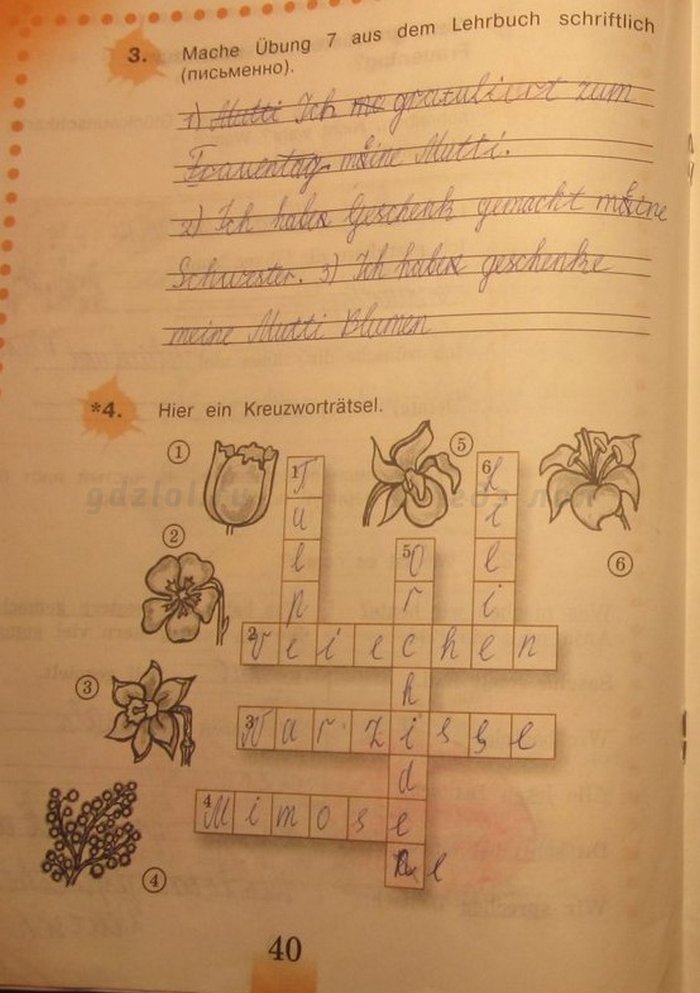 3. Mache Übung 7 aus dem Lehrbuch schriftlich
(письменно).
1) Mutti Ich gratuliert zum
Frauentag meine Mutti.
2) Ich habe Geschenk gemacht meine
Schwester. 3) Ich habe geschenke
meine Mutti Blumen
*4. Hier ein Kreuzworträtsel.
1
5
1 T
6 L
u
i
2
l
5 O
e
6
p
r
i
2 V e i l c h e n
3
h
3 N a r z i s s e
d
4 M i m o s e
4
e
40